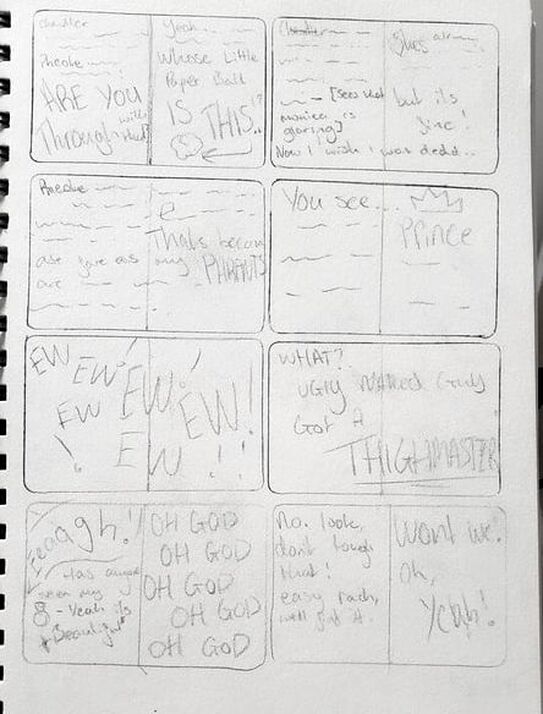 Chandler
Phoebe
ARE YOU
Through with that
Yeah..
Whose Little
Paper Ball
IS THIS..!?
Chandler
[sees that
monica is
glaring]
Now I wish I was dead..
but its
fine!
Phoebe
Thats because
my PHPANTS
are
You see...
Prince
EW
EW!
EW!
EW
EW!
EW!!
WHAT?
UGLY NAKED GUY
Got A
THIGHMASTER
Eeaagh!!
Has anyone
seen my
8 - Yeah its
Beautiful
OH GOD
OH GOD
OH GOD
OH GOD
OH GOD
No. look,
dont touch
that!
easy rach,
we'll find it.
Wont we!
Oh,
Yeah!